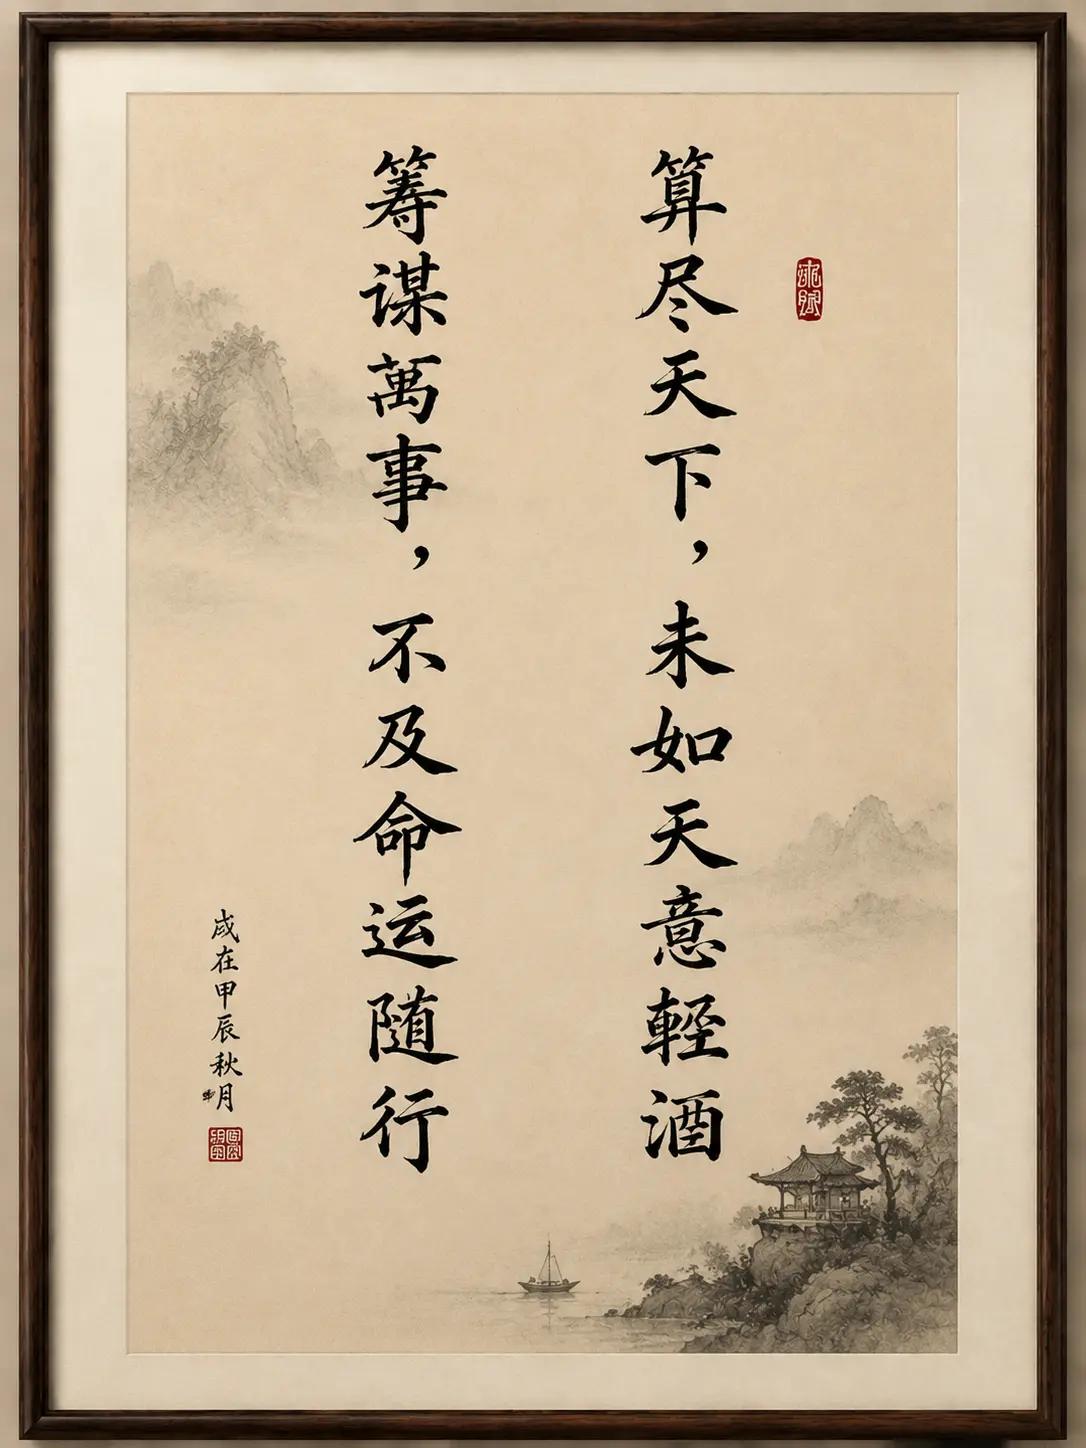 算尽天下，未如天意輕酒
籌谋萬事，不及命运随行
在甲辰秋月